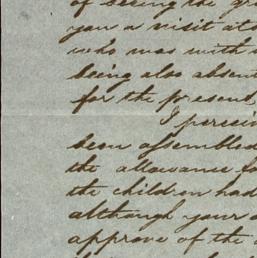 of seeing the gr
you a visit at
who was with
being also absent
for the present,
I percei
been assembled
the allowance fo
the children had
although your
approve of the